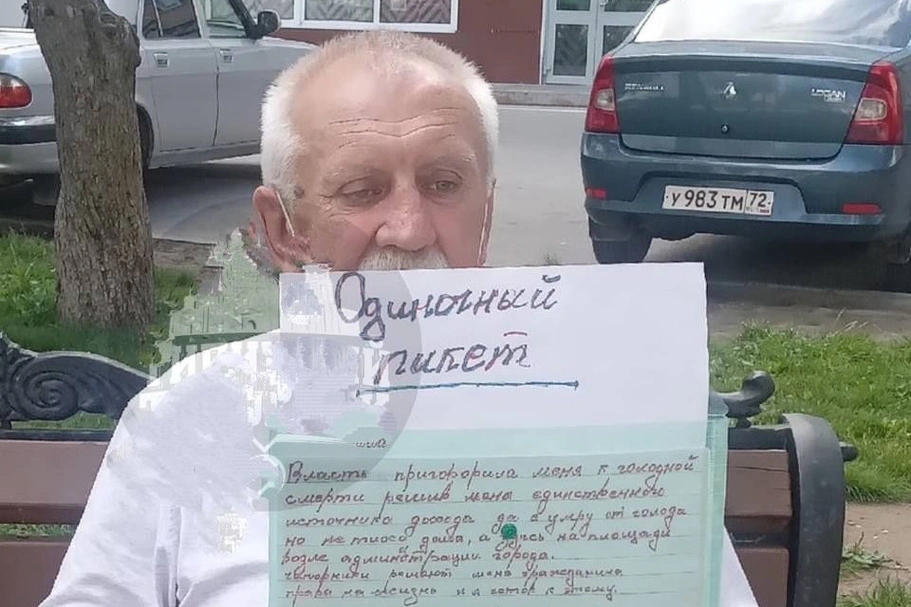 RENAULT
LOGAN
У 983 ТМ 72
Одиночный
пикет
Власть приговорила меня к голодной
смерти решив мена единственного
источника дохода да я умру от голода
но не тихо дома, а здесь на площади
возле администрации города.
чиновники решают мена гражданина
права на жизнь и я готов к этому.